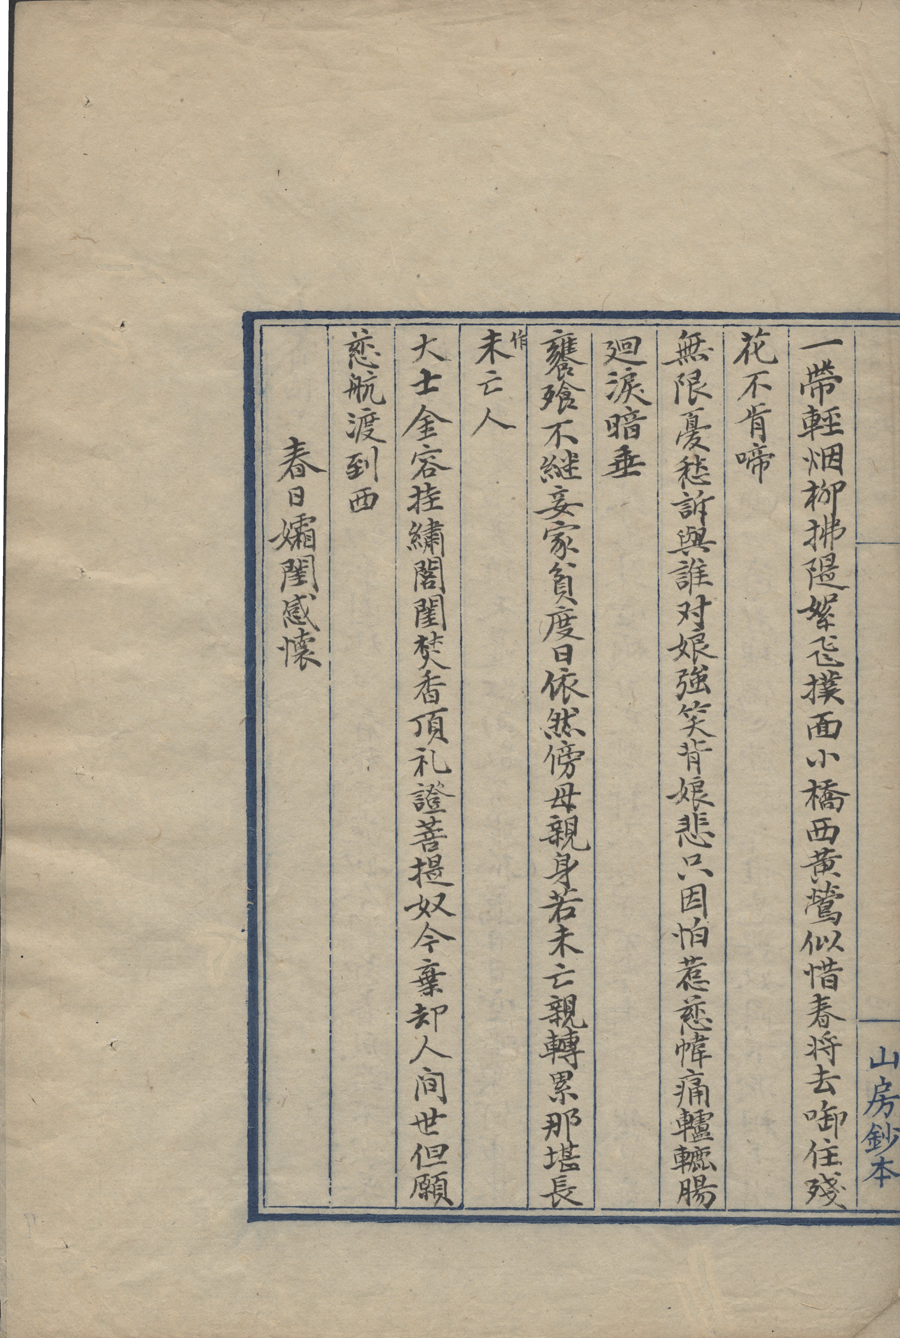 山房鈔本
一帶輕烟柳拂隄絮飛撲面小橋西黄鶯似惜春将去啣住殘
花不肯啼
無限憂愁訴與誰对娘強笑背娘悲只因怕惹慈幃痛轤轆腸
廻淚暗垂
饔飧不継妾家貧度日依然傍母親身若未亡親轉累那堪長
作未亡人
大士金容挂繡閣閨焚香頂礼證菩提奴今棄却人间世但願
慈航渡到西
春日孀閨感懷